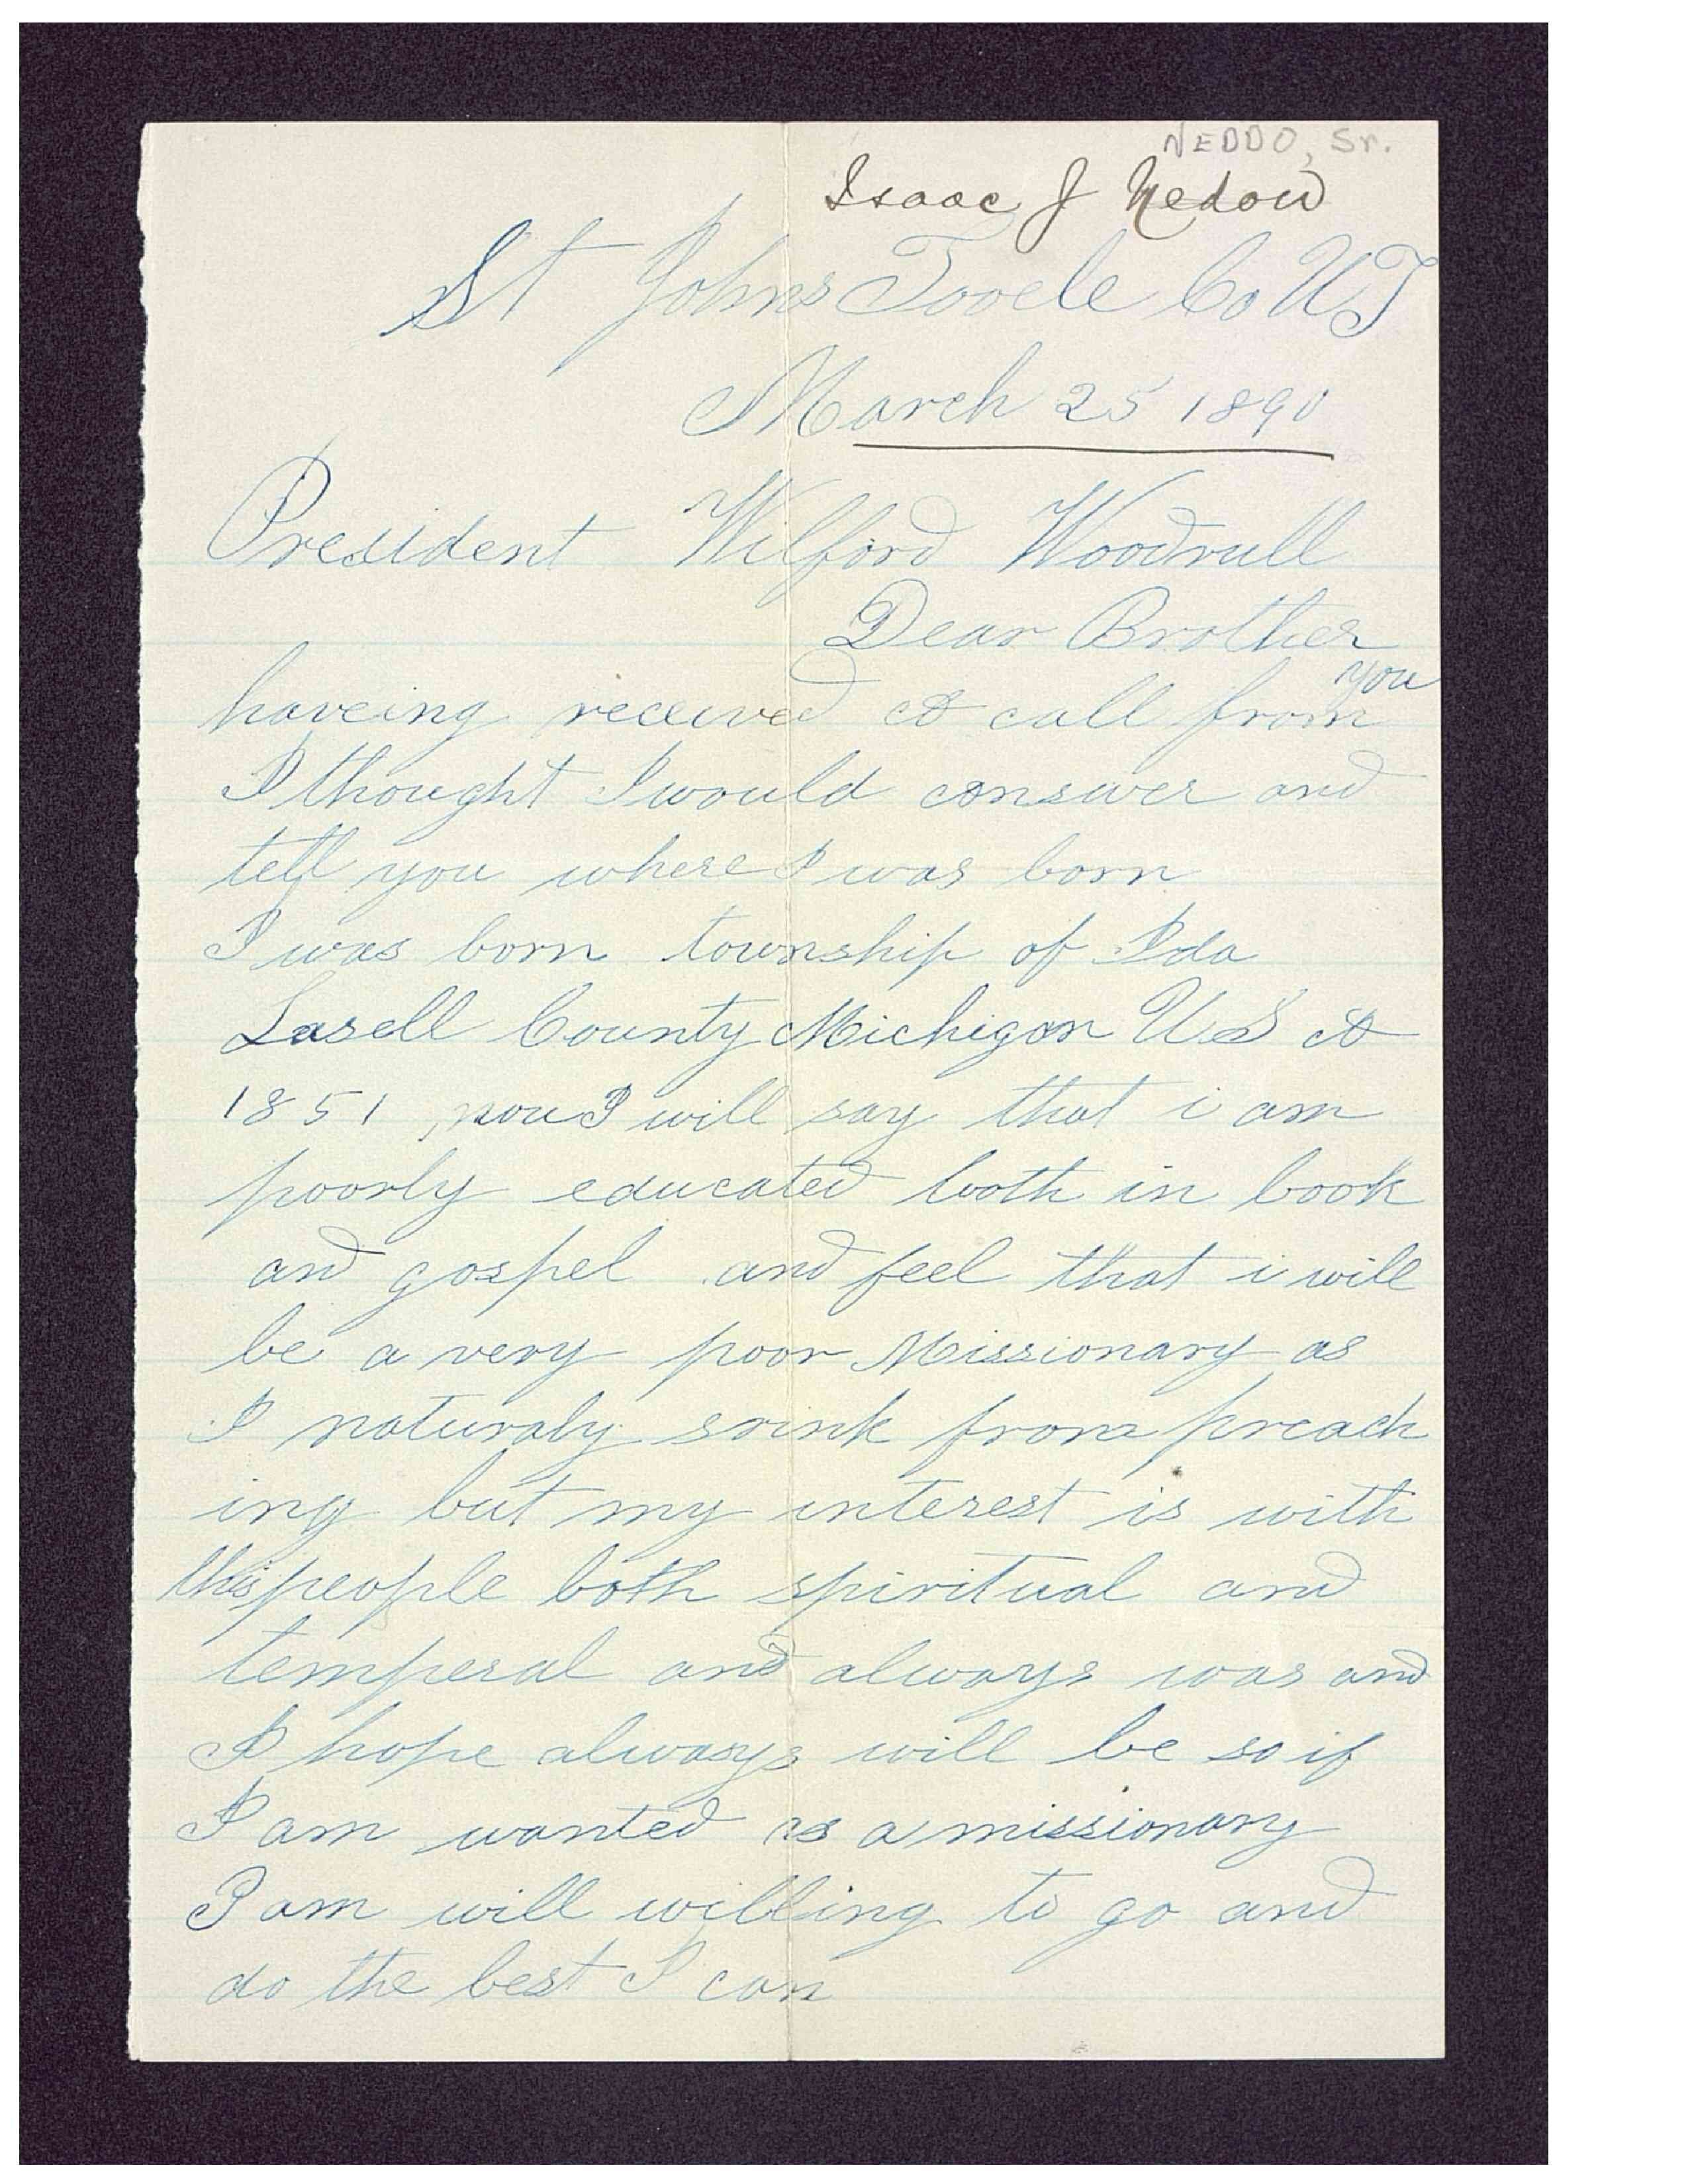 NEDDO, Sr.
Isaac J Nedow
St Johns Tooele Co UT
March 25 1890
President Wilford Woodrull
Dear Brother
haveing received A call from you
I thought I would answer and
tell you where I was born
I was born township of Ida
Lasell County Michigan U S A
1851, now I will say that i am
poorly educated both in book
and gospel and feel that i will
be a very poor Missionary as
I naturaly srink from preach
ing but my interest is with
this people both spiritual and
temperal and always was and
I hope always will be so if
I am wanted as a missionary
I am will willing to go and
do the best I can